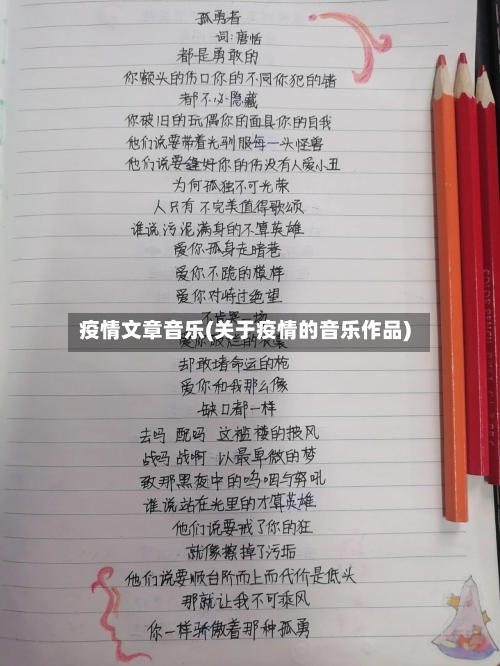 孤勇者
词:唐恬
都是勇敢的
你额头的伤口你的不同你犯的错
都不必隐藏
你破旧的玩偶你的面具你的自我
他们说要带着光驯服每一头怪兽
他们说要缝好你的伤没有人爱小丑
为何孤独不可光荣
人只有不完美值得歌颂
谁说污泥满身的不算英雄
爱你孤身走暗巷
爱你不跪的模样
爱你对峙过绝望
不肯哭一场
疫情文章音乐(关于疫情的音乐作品)
爱你破烂的衣裳
却敢堵命运的枪
爱你和我那么像
缺口都一样
去吗 配吗 这褴褛的披风
战吗 战啊 以最卑微的梦
致那黑夜中的呜咽与努吼
谁说站在光里的才算英雄
他们说要戒了你的狂
就像擦掉了污垢
他们说要顺台阶而上而代价是低头
那就让我不可乘风
你一样骄傲着那种孤勇